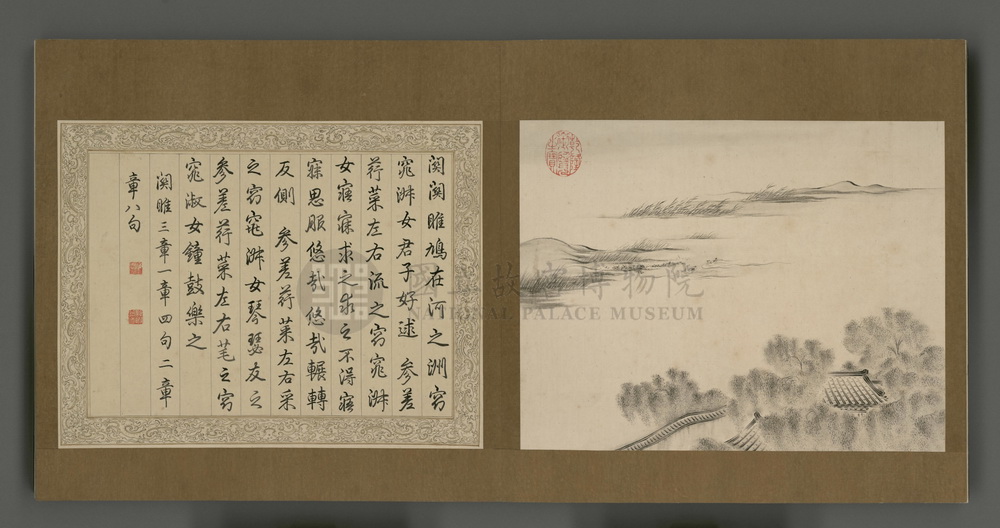 关关雎鳩在河之洲窈
窕淑女君子好逑 参差
荇菜左右流之窈窕淑
女寤寐求之求之不得寤
寐思服悠哉悠哉輾轉
反側 参差荇菜左右采
之窈窕淑女琴瑟友之
参差荇菜左右芼之窈
窕淑女鐘鼓樂之
关雎三章一章四句二章
章八句
國立故宮博物院
NATIONAL PALACE MUSEUM